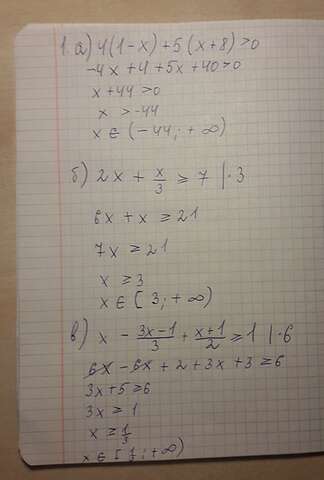 1. а) 4(1-x)+5(x+8)>0
-4x+4+5x+40>0
x+44>0
x>-44
x∈(-44;+∞)
б) 2x+x/3≥7 |·3
6x+x≥21
7x≥21
x≥3
x∈[3;+∞)
в) x-(3x-1)/3+(x+1)/2≥1 |·6
6x-6x+2+3x+3≥6
3x+5≥6
3x≥1
x≥1/3
x∈[1/3;+∞)